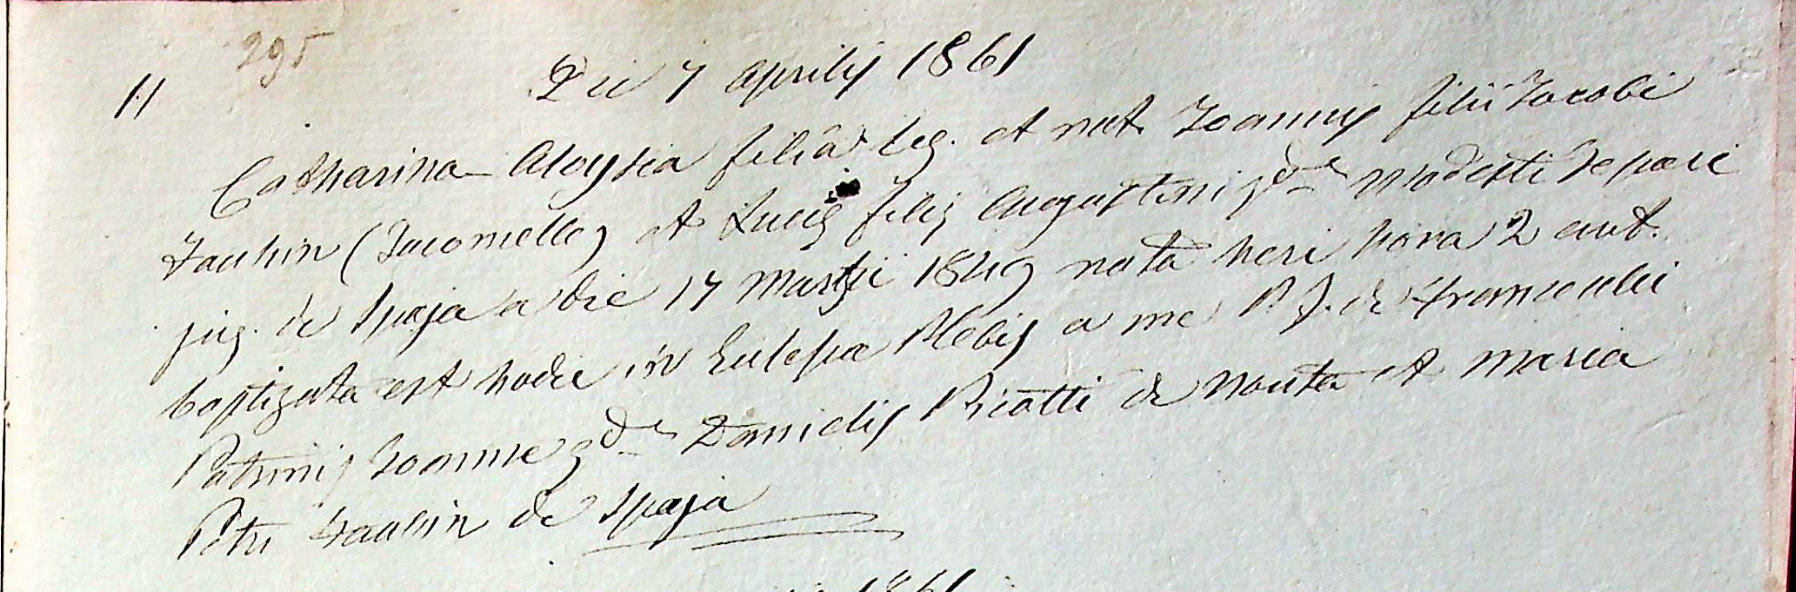 295
11 Die 7 Aprilis 1861
Catharina Aloysia filia leg. et nat. Joannis filii Jacobi
Fauhin (Jacomelle) et Luciæ filiæ Augustini qdm Modesti
jug. de Spaja a die 17 Martii 1849 nata heri hora 2 ant.
baptizata est hodie in Eccl Plebis a me P J. de Franceschi
Patrinis Joanne qdm Danielis Picotti de Nouta et Maria
Petri Fauhin de Spaja
1861